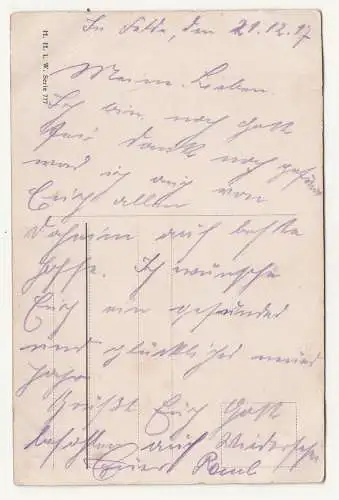 H. H. i. W. Serie 777
Im Felde, den 29.12.17
Meine Lieben.
Ich bin noch Gott
sei dank noch gesund
was ich auch von
Euch allen
daheim auch beste
hoffe. Ich wünsche
Euch ein gesundes
und glückliches neues
Jahr.
Grüßt Euch Gott
befohlen auch Wiedersehn
Euer Paul